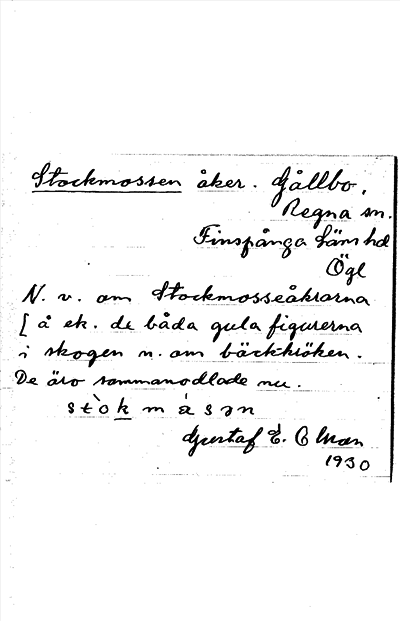 Stockmossen åker. Gållbo,
Regna sn.
Finspånga läns hd
Ögl
N. v. om Stockmosseåkrarna
[ å ek. de båda gula figurerna
i skogen n. om bäckkröken.
De äro sammanodlade nu.
stòk másən
Gustaf E. Olson
1930